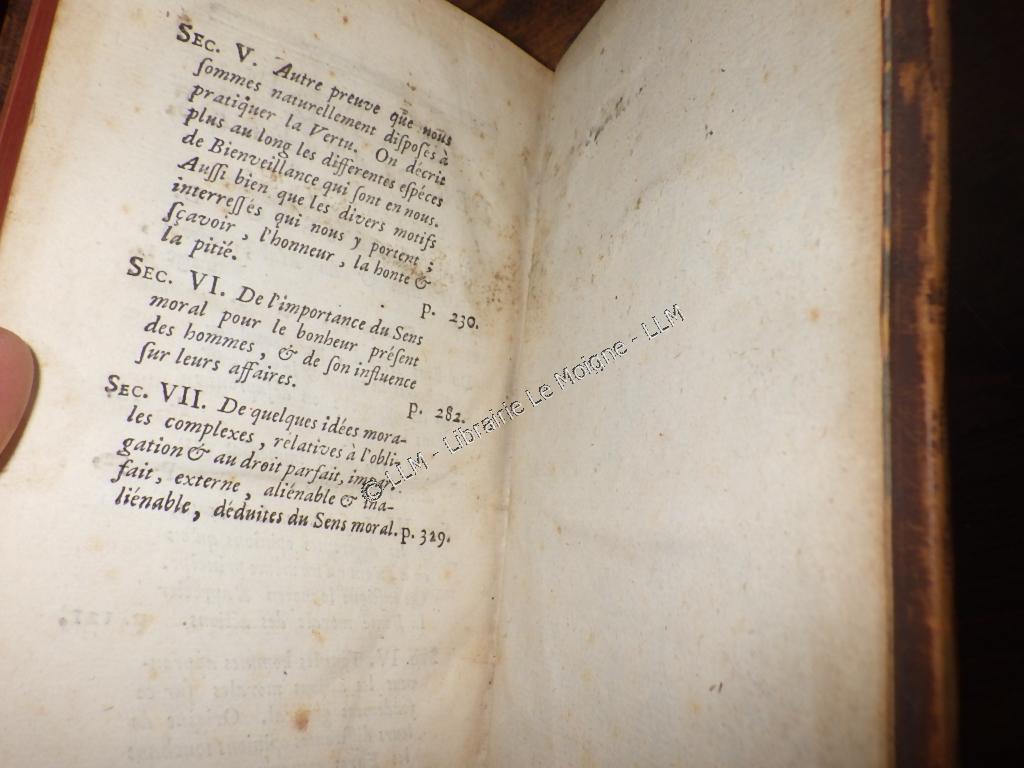 SEC. V. Autre preuve que nous
ſommes naturellement diſpoſés à
pratiquer la Vertu. On décrit
plus au long les differentes eſpéces
de Bienveillance qui ſont en nous.
Auſſi bien que les divers motifs
interreſſés qui nous y portent ;
ſçavoir , l'honneur , la honte &
la pitié. p. 230.
SEC. VI. De l'importance du Sens
moral pour le bonheur préſent
des hommes , & de ſon influence
ſur leurs affaires. p. 282.
SEC. VII. De quelques idées mora-
les complexes , relatives à l'obli-
gation & au droit parfait, impar-
fait, externe, aliénable & ina-
liénable, déduites du Sens moral. p. 329.
© LLM - Librairie Le Moigne - LLM